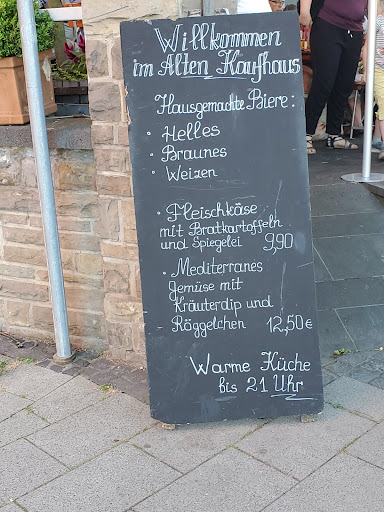 Willkommen
im Alten Kaufhaus
Hausgemachte Biere:
· Helles
· Braunes
· Weizen
· Fleischkäse
mit Bratkartoffeln
und Spiegelei 9,90
· Mediterranes
Gemüse mit
Kräuterdip und
Röggelchen 12,50€
Warme Küche
bis 21 Uhr